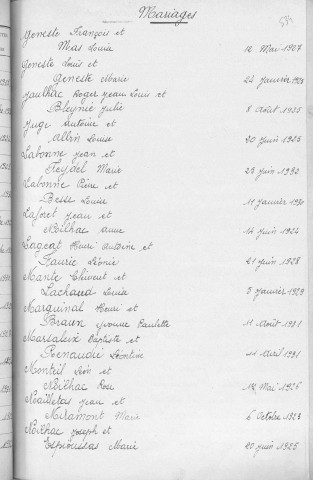 Mariages
Geneste François et
Mas Louise 12 Mai 1927
Geneste Louis et
Geneste Marie 24 Janvier
Jaulhac Roger Jean Louis et
Bleynie Julie 8 Août
Juge Antoine et
Albin Louise 20 Juin 1925
Labonne Jean et
Feydel Marie 25 Juin
Labonne Pierre et
Besse Louise 11 Janvier
Laforet Jean et
Neilhac Anne 14 Juin 1924
Lageat Henri Antoine et
Faurie Léonie 21 Juin 1928
Mante et
Lachaud Louise 5 Janvier 1929
Marquinal Henri et
Braun Yvonne Paulette 11 Août 1931
Marsaleix Baptiste et
Léontine 11 Avril 1931
Monteil Léon et
Neilhac Rose 12 Mai 1926
Jean et
Miramont Marie 6 Octobre 1923
Neilhac Joseph et
Espinoussas Marie 20 Juin 1925